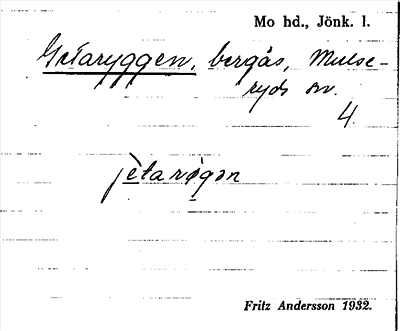 Mo hd., Jönk. l.
Getaryggen, bergås, Mulse-
ryds sn.
4.
jètarøgən
Fritz Andersson 1932.